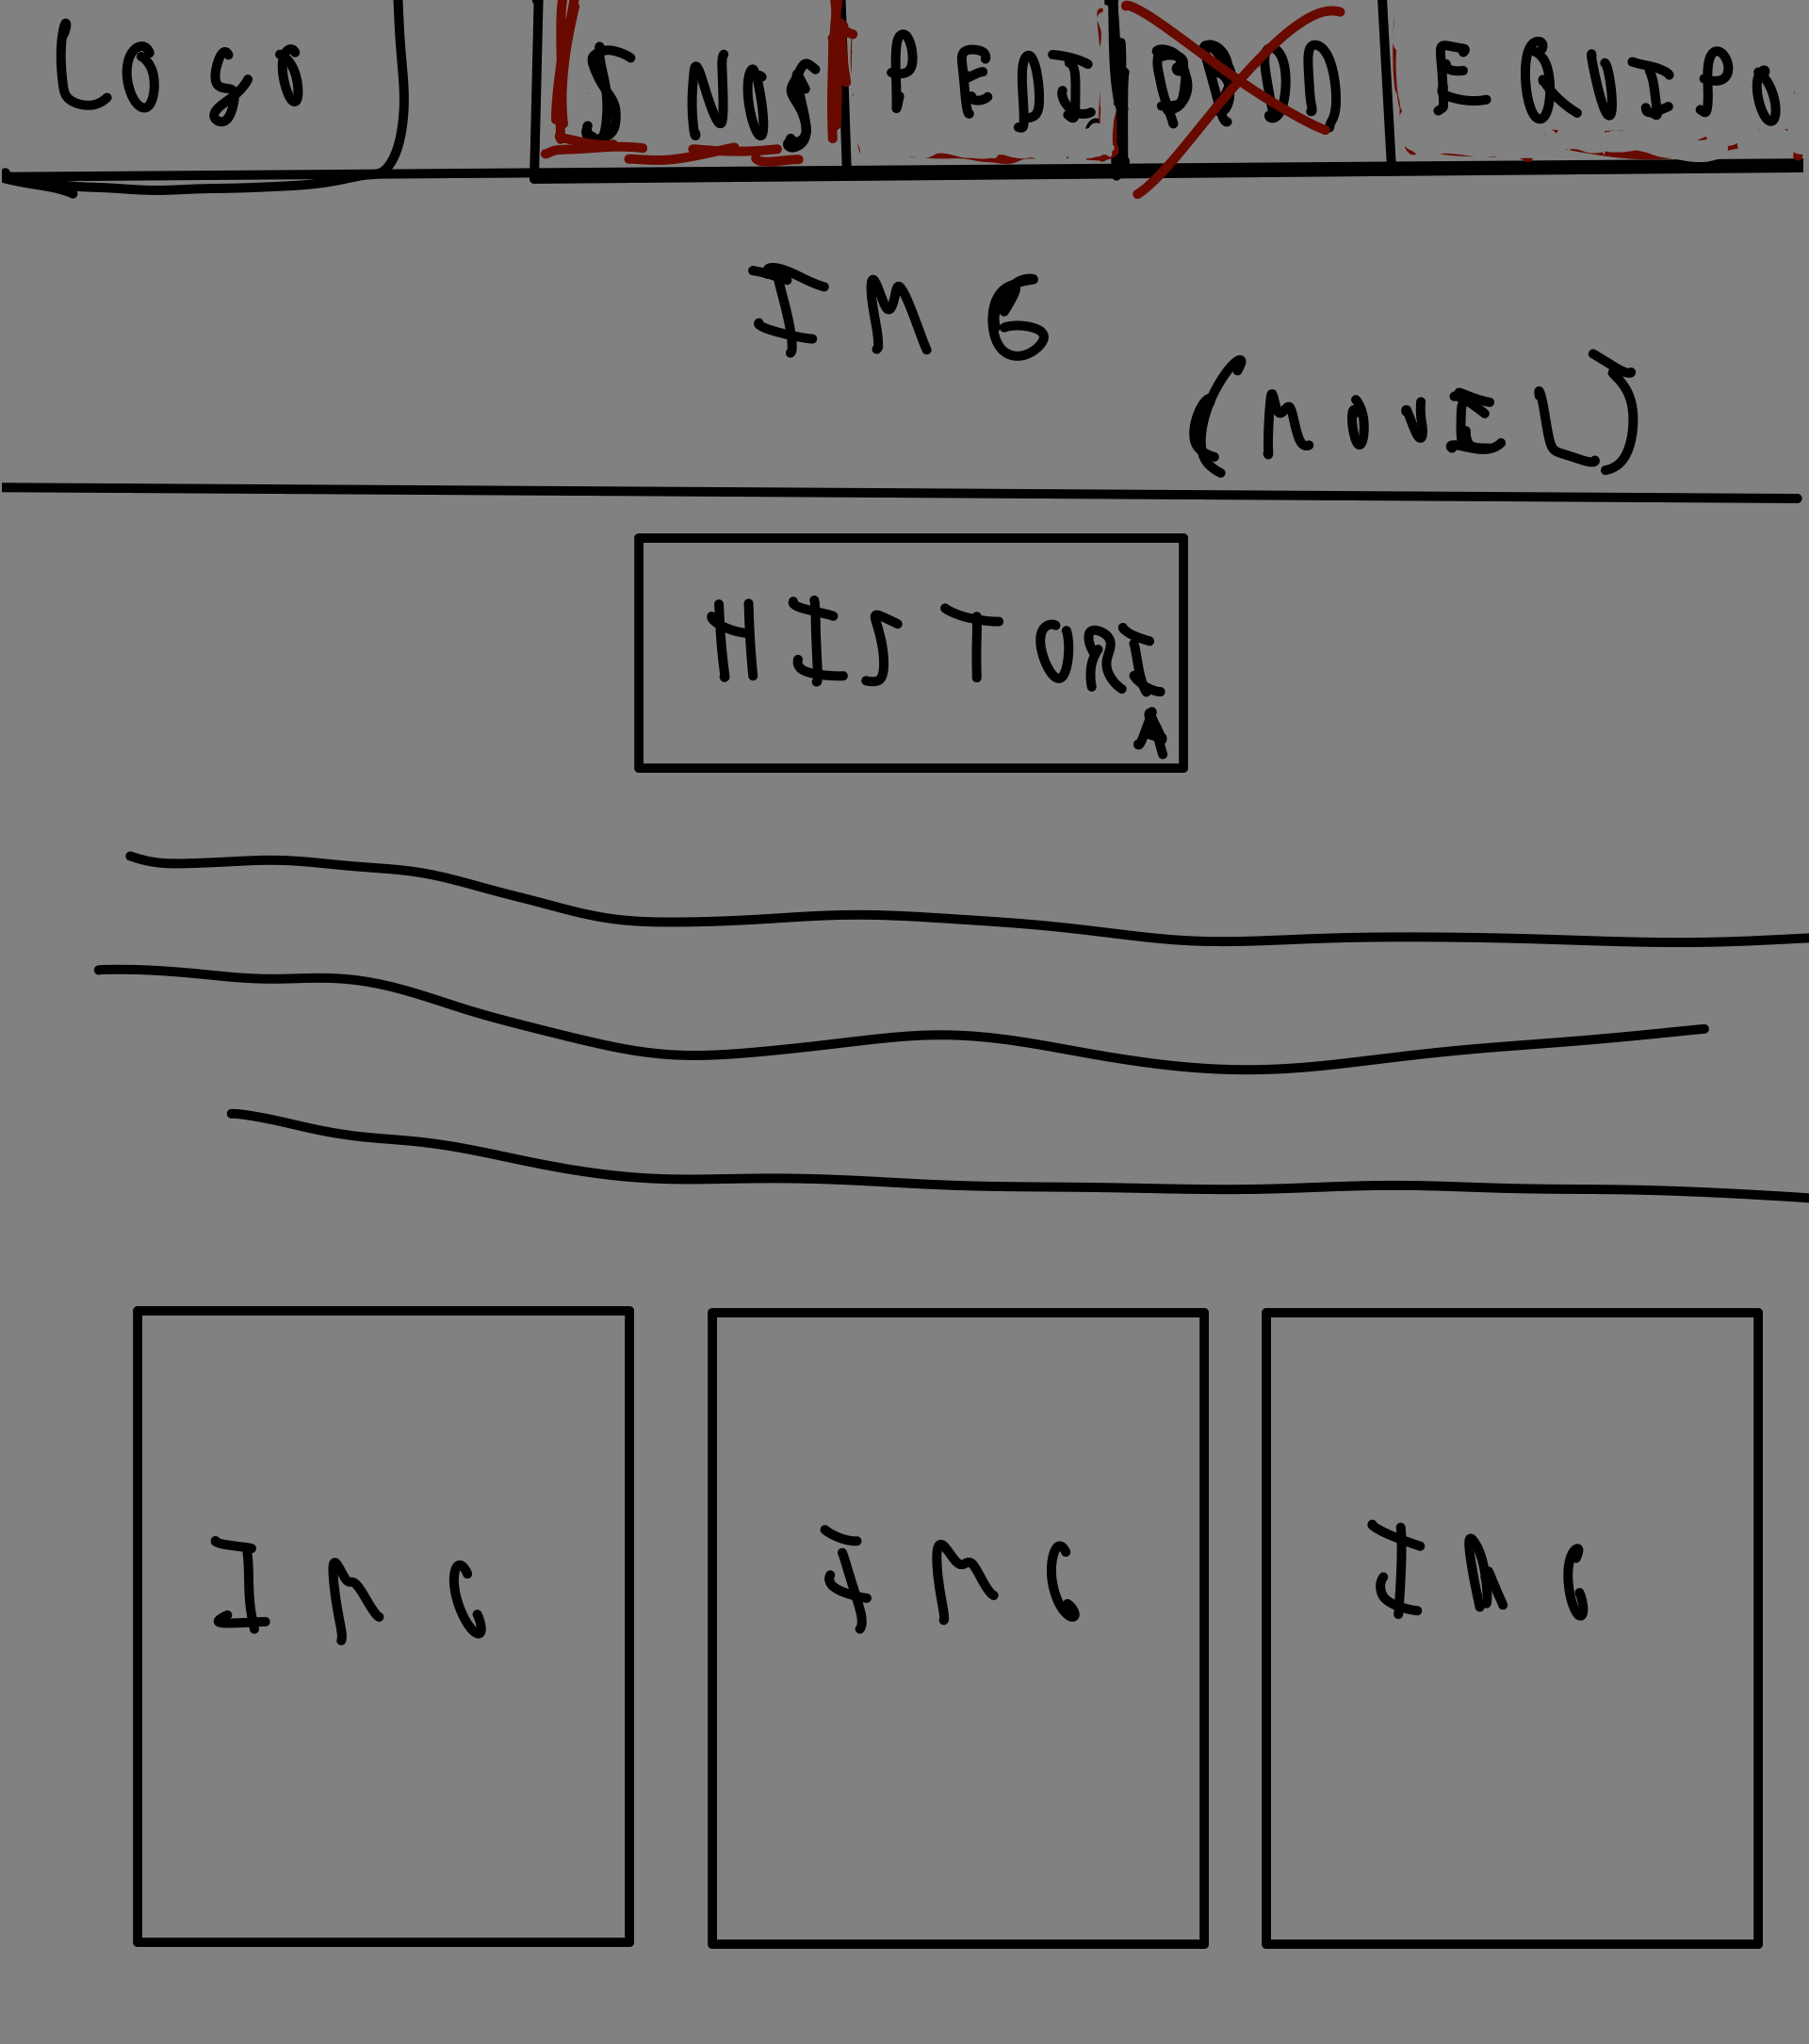 Logo PEDI PROD EQUIPO
IMG
(MOVIL)
HISTORI
A
IMG IMG IMG